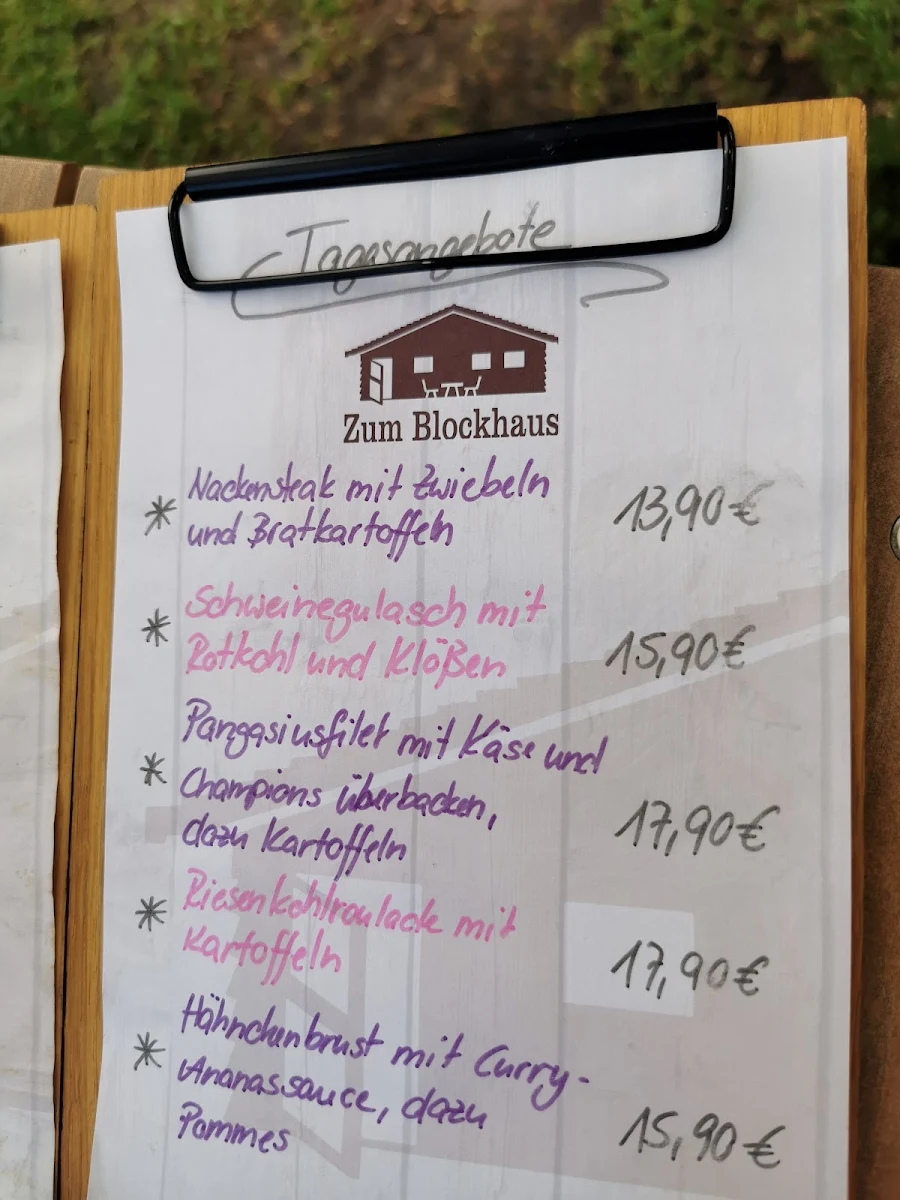 Tagesangebote
Zum Blockhaus
* Nackensteak mit Zwiebeln
und Bratkartoffeln 13,90 €
* Schweinegulasch mit
Rotkohl und Klößen 15,90 €
Pangasiusfilet mit Käse und
* Champions überbacken,
dazu Kartoffeln 17,90 €
* Riesenkohlroulade mit
Kartoffeln 17,90 €
Hähnchenbrust mit Curry-
* Ananassauce, dazu
Pommes 15,90 €